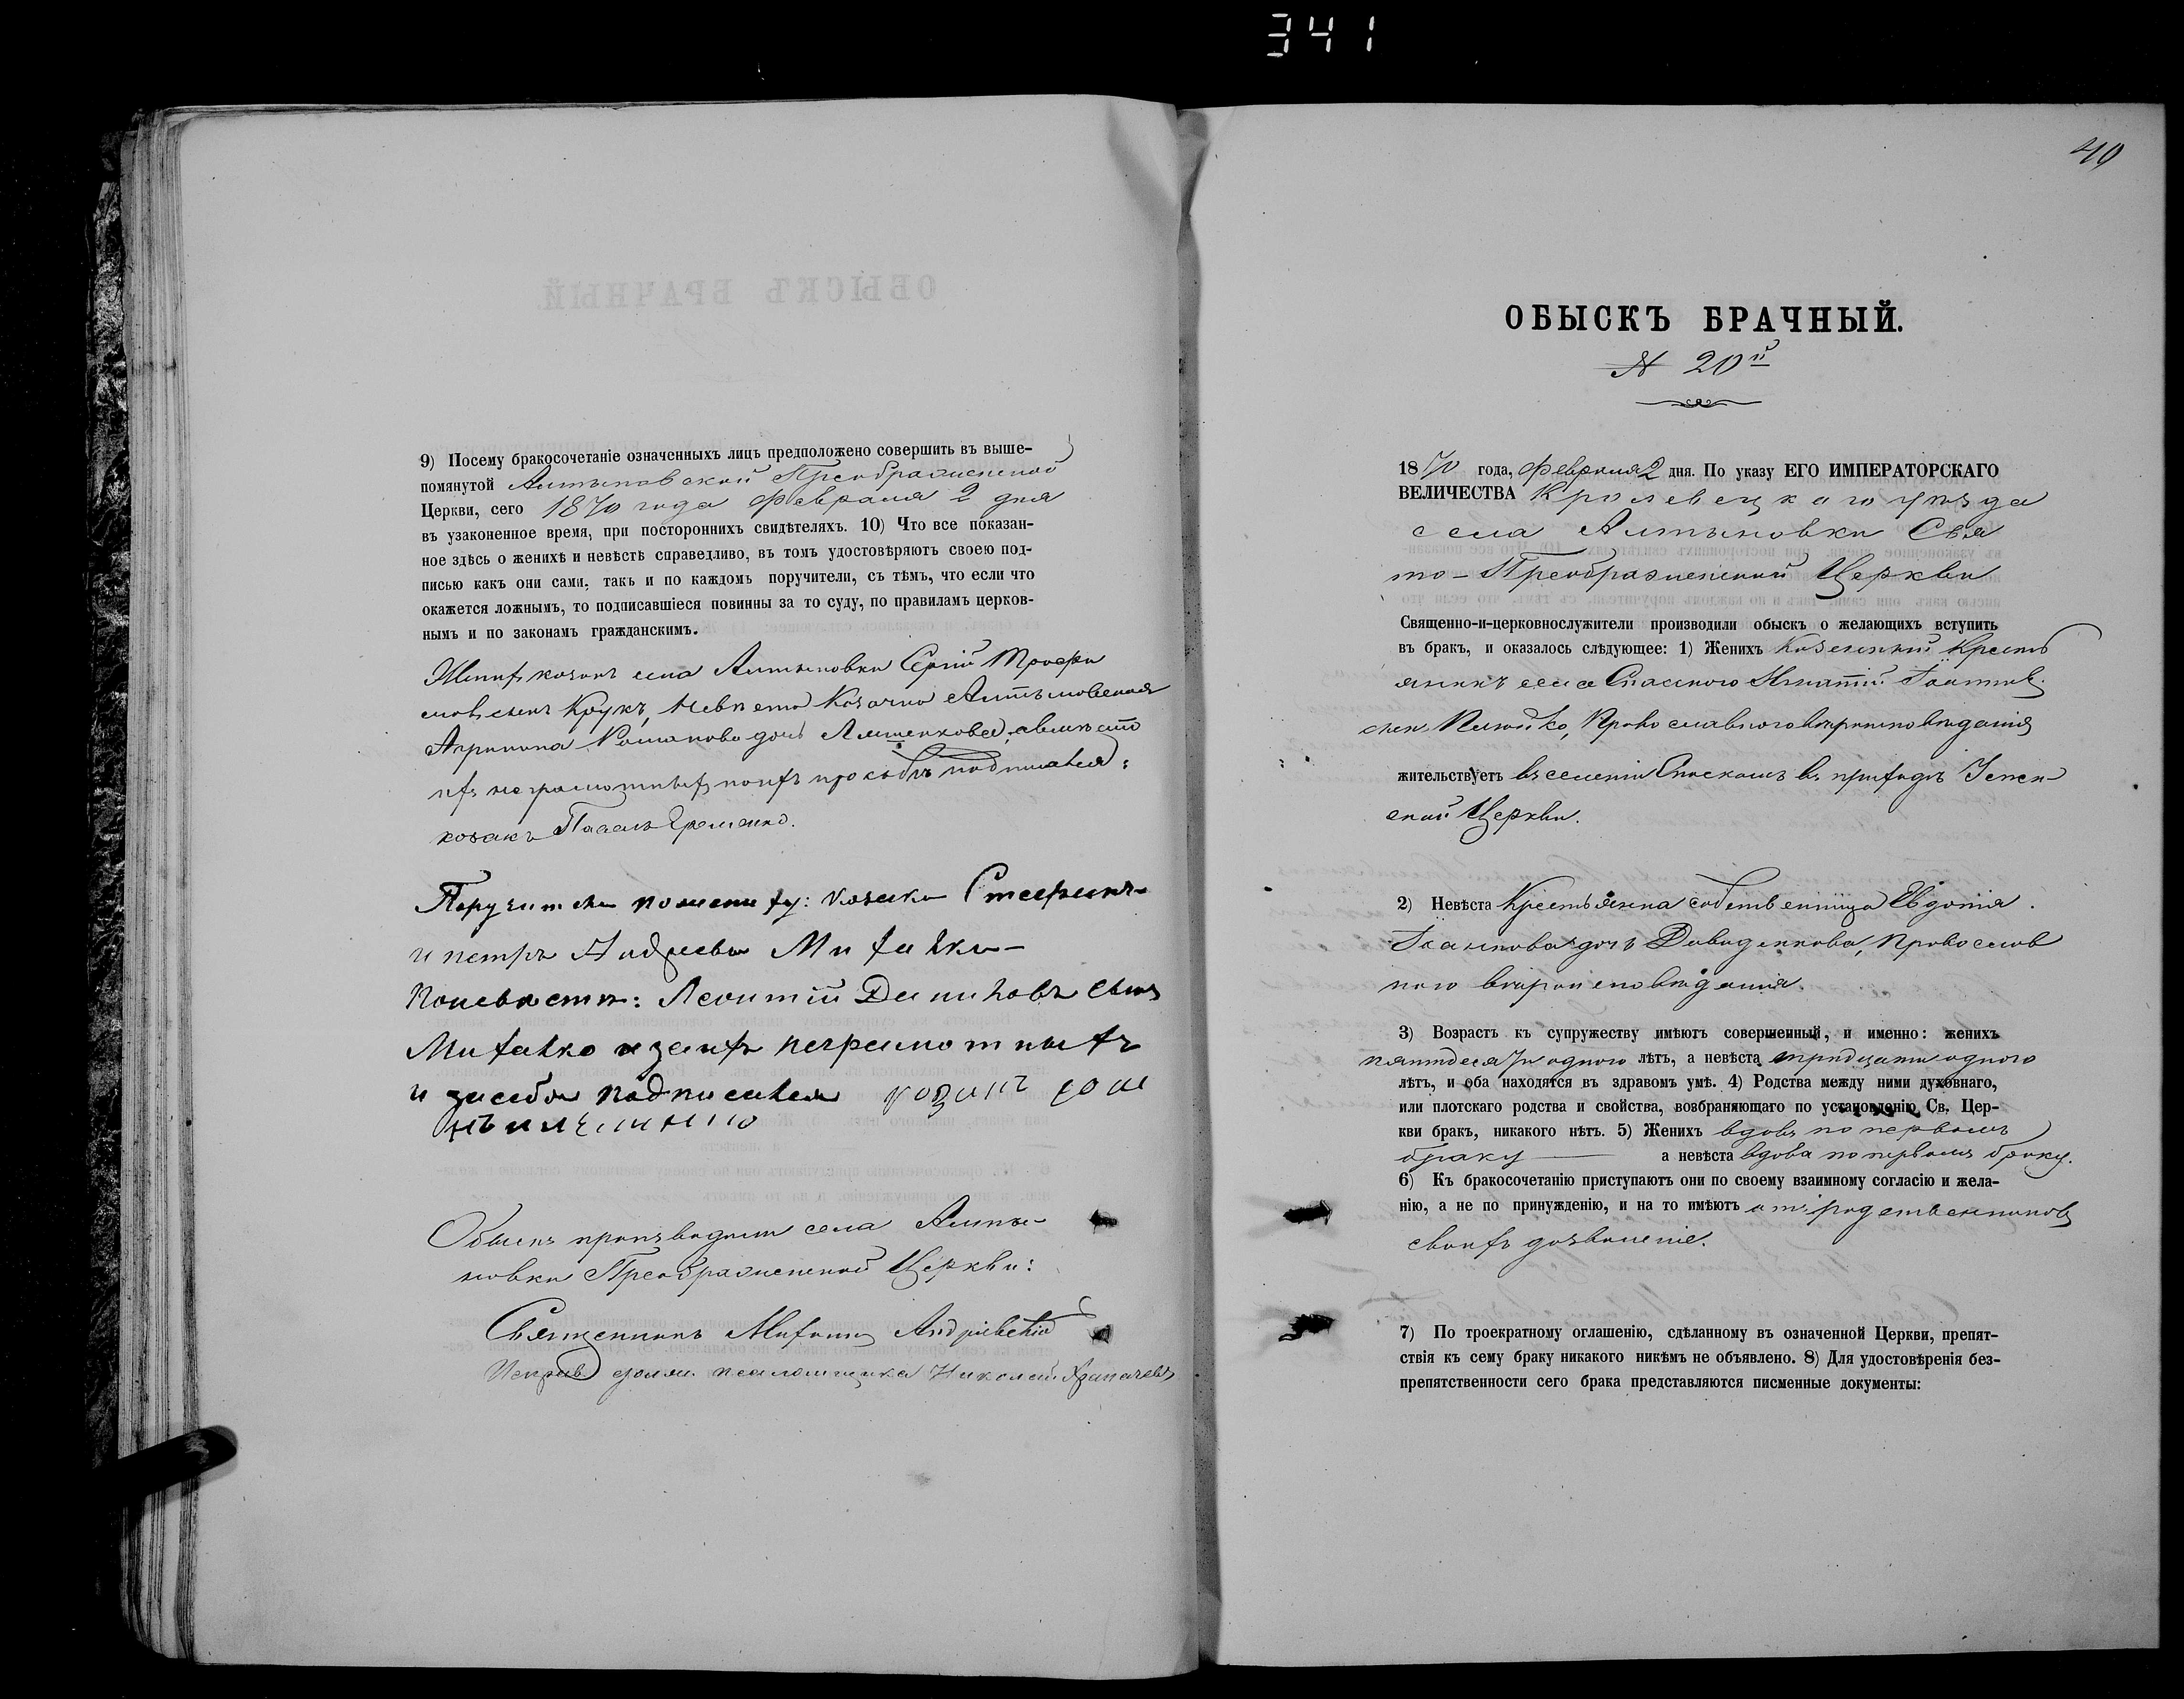 341
9) Посему бракосочетаніе означенныхъ лицъ предположено совершить въ выше-
помянутой Алтыновской Преображенской
Церкви, сего 1870 года Февраля 2 дня
въ узаконенное время, при постороннихъ свидѣтеляхъ. 10) Что все показан-
ное здѣсь о женихѣ и невѣстѣ справедливо, въ томъ удостовѣряютъ своею под-
писью какъ они сами, такъ и по каждомъ поручители, съ тѣмъ, что если что
окажется ложнымъ, то подписавшіеся повинны за то суду, по правиламъ церков-
нымъ и по законамъ гражданскимъ.
Женихъ козакъ села Алтыновки Сергій Трофи
мовъ сынъ Крукъ, Невѣста Козачка Алтыновская
Романова дочь а вмѣсто
ихъ неграмотныхъ поихъ просьбѣ подписался:
козакъ Павелъ Еременко.
Поручители по жениху: козаки Стефанъ
и петръ Андреевы Михайки
поневѣсти: Леонтій Даниловъ сынъ
Михайко изаихъ неграмотныхъ
и засебя подписался козакъ
Обыскъ производили села Алты-
новки Преображенской Церкви:
Священникъ Андріевскій
Исправ. должн. псаломщика Николай
40
ОБЫСКЪ БРАЧНЫЙ.
№ 20й
1870 года, Февраля 2 дня. По указу ЕГО ИМПЕРАТОРСКАГО
ВЕЛИЧЕСТВА Кролевецкаго уѣзда
села Алтыновки Свя
то-Преображенской Церкви
Священно-и-церковнослужители производили обыскъ о желающихъ вступить
въ бракъ, и оказалось слѣдующее: 1) Женихъ Казенный Кресть
янинъ села Спаского Игнатій
сынъ Православного вѣроисповѣданія
жительствуетъ въ селеніи Спаскомъ въ приходѣ Успен-
ской Церкви.
2) Невѣста Крестьянка собственница Евдокія
дочь Давиденкова, Православ
ного вѣроисповѣданія.
3) Возрастъ къ супружеству имѣютъ совершенный, и именно: женихъ
пятидесяти одного лѣтъ, а невѣста тридцати одного
лѣтъ, и оба находятся въ здравомъ умѣ. 4) Родства между ними духовнаго,
или плотскаго родства и свойства, возбраняющаго по установленію Св. Цер-
кви бракъ, никакого нѣтъ. 5) Женихъ вдовъ по первомъ
браку а невѣста вдова по первомъ браку.
6) Къ бракосочетанію приступаютъ они по своему взаимному согласію и жела-
нію, а не по принужденію, и на то имѣютъ отъ родственниковъ
своихъ дозволеніе.
7) По троекратному оглашенію, сдѣланному въ означенной Церкви, препят-
ствія къ сему браку никакого никѣмъ не объявлено. 8) Для удостовѣренія без-
препятственности сего брака представляются писменные документы: